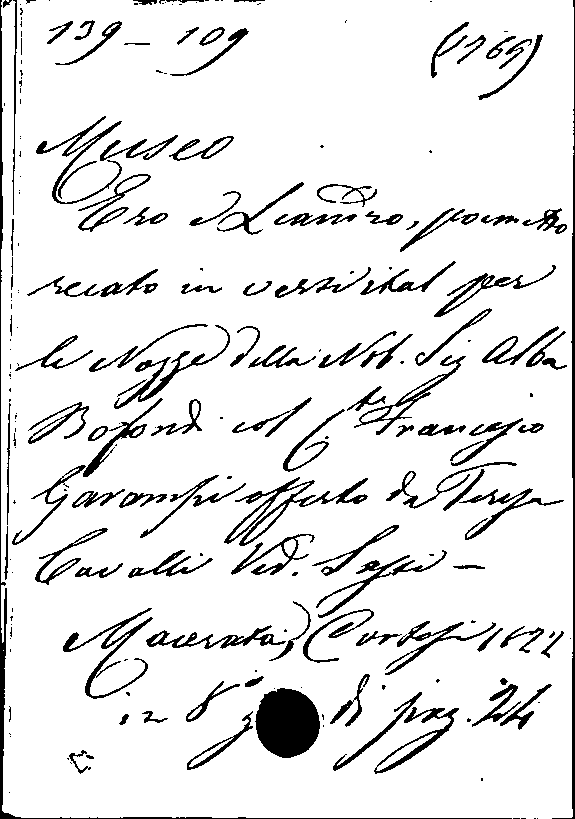 139 – 109 (1765)
Museo
Ero e Leandro, poemetto
recato in versi ital per
le Nozze della Nob. Sig Alba
Bofondi col Cte Francesco
Garampi offerto da Teresa
Cavalli Ved. Sassi –
Macerata, Cortesi 1822
in 8° di pag.